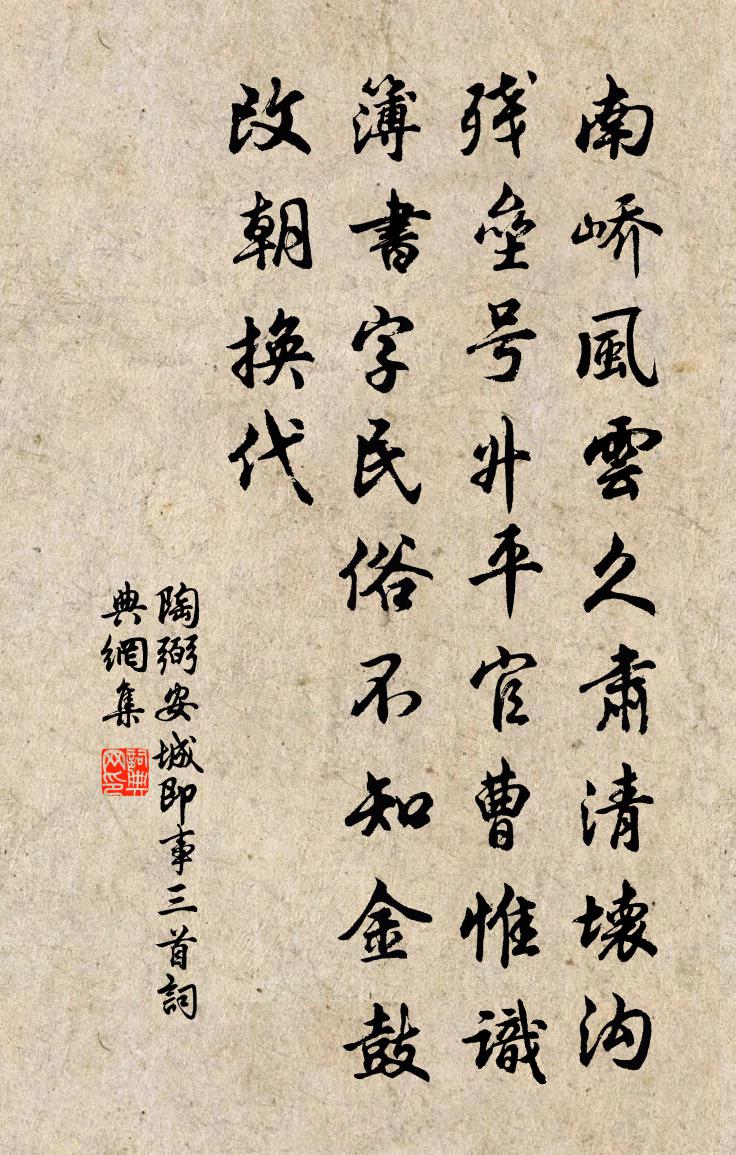 南峤風雲久肅清壞沟
残壘号升平官曹惟識
簿書字民俗不知金鼓
改朝換代
陶弼安城即事三首詞
典網集
詞典
网印